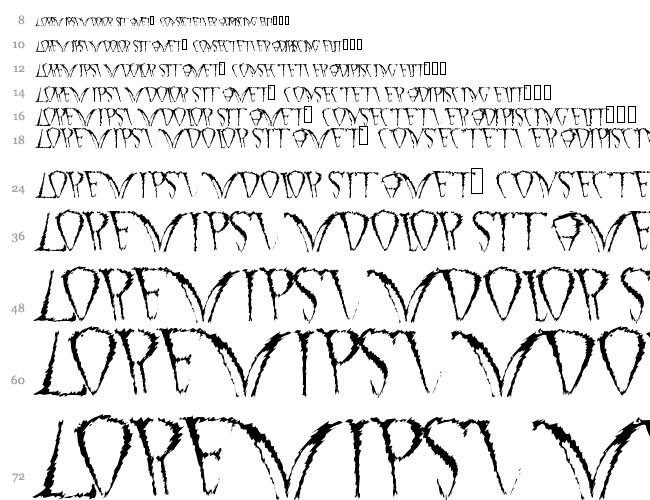 8 LOREM IPSUM DOLOR SIT AMET□ CONSECTETUER ADIPISCING ELIT□□□
10 LOREM IPSUM DOLOR SIT AMET□ CONSECTETUER ADIPISCING ELIT□□□
12 LOREM IPSUM DOLOR SIT AMET□ CONSECTETUER ADIPISCING ELIT□□□
14 LOREM IPSUM DOLOR SIT AMET□ CONSECTETUER ADIPISCING ELIT□□□
16 LOREM IPSUM DOLOR SIT AMET□ CONSECTETUER ADIPISCING ELIT□□□
18 LOREM IPSUM DOLOR SIT AMET□ CONSECTETUER ADIPISC
24 LOREM IPSUM DOLOR SIT AMET□ CONSECTE
36 LOREM IPSUM DOLOR SIT AME
48 LOREM IPSUM DOLOR S
60 LOREM IPSUM DO
72 LOREM IPSUM